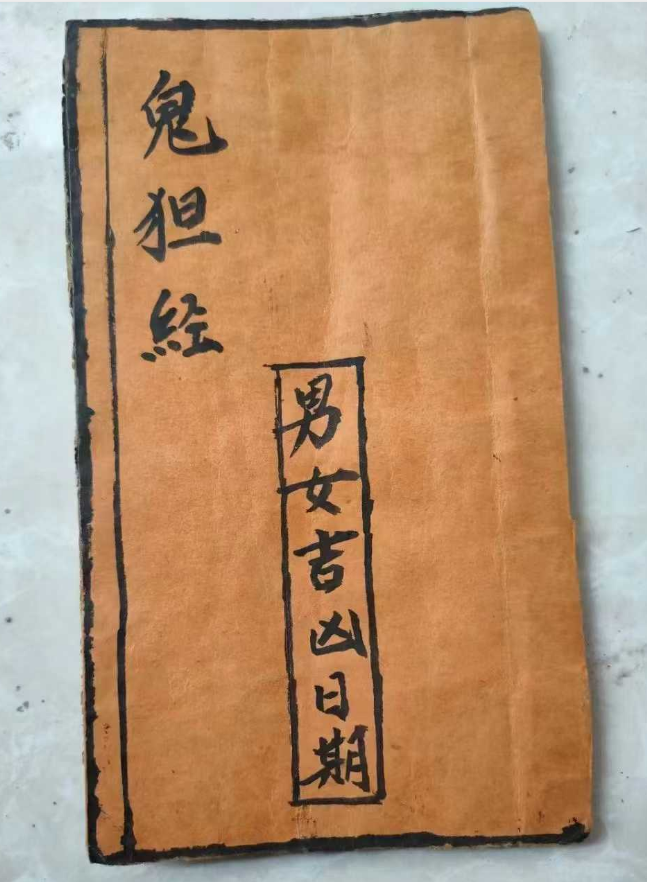 鬼狚経
男女吉凶日期